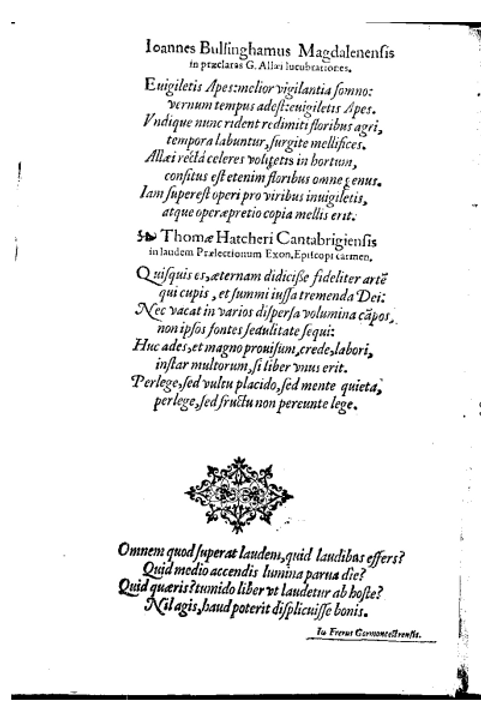 Ioannes Bulſinghamus Magdalenenſis
in præclaras G. Allæi lucubrationes.
Euigiletis Apes: melior vigilantia ſomno:
vernum tempus adeſt: euigiletis Apes.
Vndique nunc rident redimiti floribus agri,
tempora labuntur, ſurgite mellifices.
Allæi rectà celeres volitetis in hortum,
conſitus eſt etenim floribus omne genus.
Iam ſupereſt operi pro viribus inuigiletis,
atque operæpretio copia mellis erit.
Thomæ Hatcheri Cantabrigienſis
in laudem Prælectionum Exon. Epiſcopi carmen.
Quiſquis es, æternam didiciſſe fideliter artē
qui cupis, et ſummi iuſſa tremenda Dei:
Nec vacat in varios diſperſa volumina cāpos,
non ipſos fontes ſedulitate ſequi:
Huc ades, et magno prouiſum, crede, labori,
inſtar multorum, ſi liber vnus erit.
Perlege, ſed vultu placido, ſed mente quieta,
perlege, ſed fructu non pereunte lege.
Omnem quod ſuperat laudem, quid laudibus effers?
Quid medio accendis lumina parua die?
Quid quæris? tumido liber vt laudetur ab hoſte?
Nil agis, haud poterit diſplicuiſſe bonis.
Io Frerus Germonceſtrenſis.